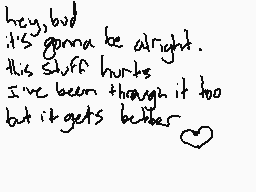 hey, bud
it's gonna be alright.
this stuff hurts
I've been through it too
but it gets better